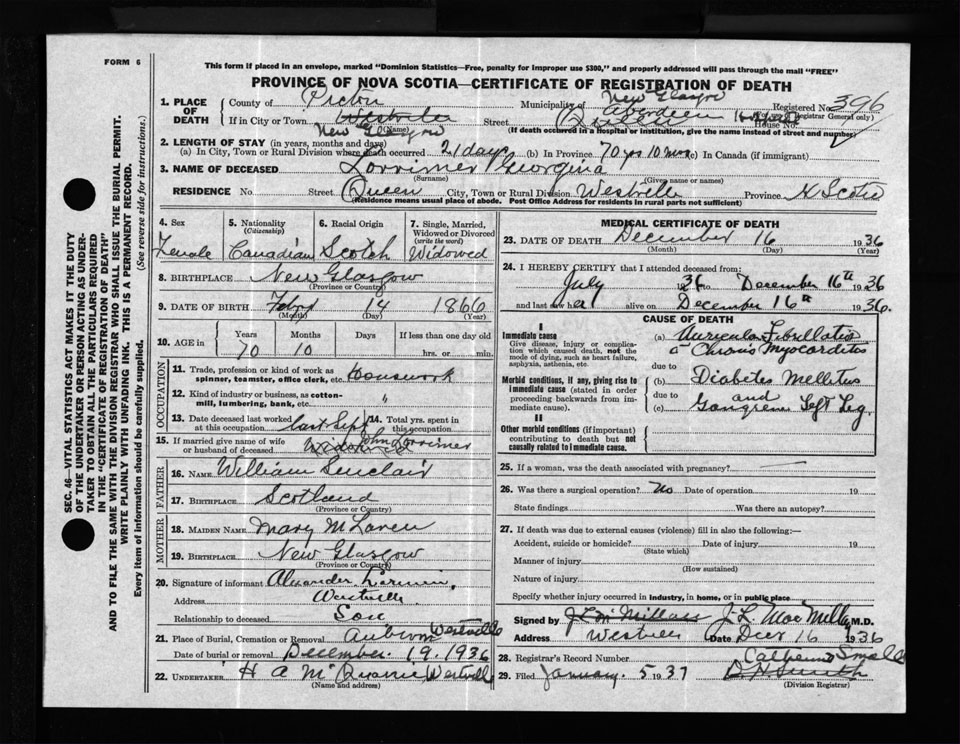 FORM 6
This form if placed in an envelope, marked "Dominion Statistics—Free, penalty for improper use $300," and properly addressed will pass through the mail "FREE"
PROVINCE OF NOVA SCOTIA—CERTIFICATE OF REGISTRATION OF DEATH
1. PLACE OF DEATH
County of Pictou Municipality of New Glasgow Registered No. 396
(Registrar General only)
If in City or Town Westville New Glasgow Street Queen Aberdeen House No.
(Name)
(If death occurred in a hospital or institution, give the name instead of street and number)
2. LENGTH OF STAY (in years, months and days)
(a) In City, Town or Rural Division where death occurred 21 days (b) In Province 70 yrs 10 mos (c) In Canada (if immigrant)
3. NAME OF DECEASED Lorrimer Georgina
(Surname) (Given name or names)
RESIDENCE No Street Queen City, Town or Rural Division Westville Province N Scotia
(Residence means usual place of abode. Post Office Address for residents in rural parts not sufficient)
4. Sex Female
5. Nationality (Citizenship) Canadian
6. Racial Origin Scotch
7. Single, Married, Widowed or Divorced (write the word) Widowed
8. BIRTHPLACE New Glasgow
(Province or Country)
9. DATE OF BIRTH Feby 14 1866
(Month) (Day) (Year)
10. AGE in Years Months Days If less than one day old
70 10 hrs. or min.
OCCUPATION
11. Trade, profession or kind of work as spinner, teamster, office clerk, etc. Housework
12. Kind of industry or business, as cotton-mill, lumbering, bank, etc. "
13. Date deceased last worked at this occupation last Sept
14. Total yrs. spent in this occupation
15. If married give name of wife or husband of deceased John Lorrimer
FATHER
16. NAME William Sinclair
17. BIRTHPLACE Scotland
(Province or Country)
MOTHER
18. MAIDEN NAME Mary McLaren
19. BIRTHPLACE New Glasgow
(Province or Country)
20. Signature of informant Alexander
Address Westville
Relationship to deceased Son
21. Place of Burial, Cremation or Removal Auburn Westville
Date of burial or removal December 19, 1936
22. UNDERTAKER H A McQuarrie Westville
(Name and address)
MEDICAL CERTIFICATE OF DEATH
23. DATE OF DEATH December 16 1936
(Month) (Day)
24. I HEREBY CERTIFY that I attended deceased from:
July 1936 to December 16th 1936
and last saw her alive on December 16th 1936.
CAUSE OF DEATH
I
Immediate cause
Give disease, injury or complication which caused death, not the mode of dying, such as heart failure, asphyxia, asthenia, etc.
(a) Auricular Fibrillation
c Chronic Myocarditis
due to
Morbid conditions, if any, giving rise to immediate cause (stated in order proceeding backwards from immediate cause).
(b) Diabetes Mellitus
due to and
(c) Gangrene Left Leg.
II
Other morbid conditions (if important) contributing to death but not causally related to immediate cause.
25. If a woman, was the death associated with pregnancy? —
26. Was there a surgical operation? No Date of operation 19
State findings Was there an autopsy?
27. If death was due to external causes (violence) fill in also the following:—
Accident, suicide or homicide? Date of injury 19
(State which)
Manner of injury
(How sustained)
Nature of injury
Specify whether injury occurred in Industry, in home, or in public place
Signed by J L McMillan J. L. MacMillan M.D.
Address Westville Date Decr 16 1936
28. Registrar's Record Number
29. Filed January 5 1937 Catherine Small
D H Smith
(Division Registrar)
SEC. 46—VITAL STATISTICS ACT MAKES IT THE DUTY
OF THE UNDERTAKER OR PERSON ACTING AS UNDERTAKER TO OBTAIN ALL THE PARTICULARS REQUIRED
IN THE "CERTIFICATE OF REGISTRATION OF DEATH"
AND TO FILE THE SAME WITH THE DIVISION REGISTRAR WHO SHALL ISSUE THE BURIAL PERMIT.
WRITE PLAINLY WITH UNFADING INK. THIS IS A PERMANENT RECORD.
Every item of information should be carefully supplied. (See reverse side for instructions.)